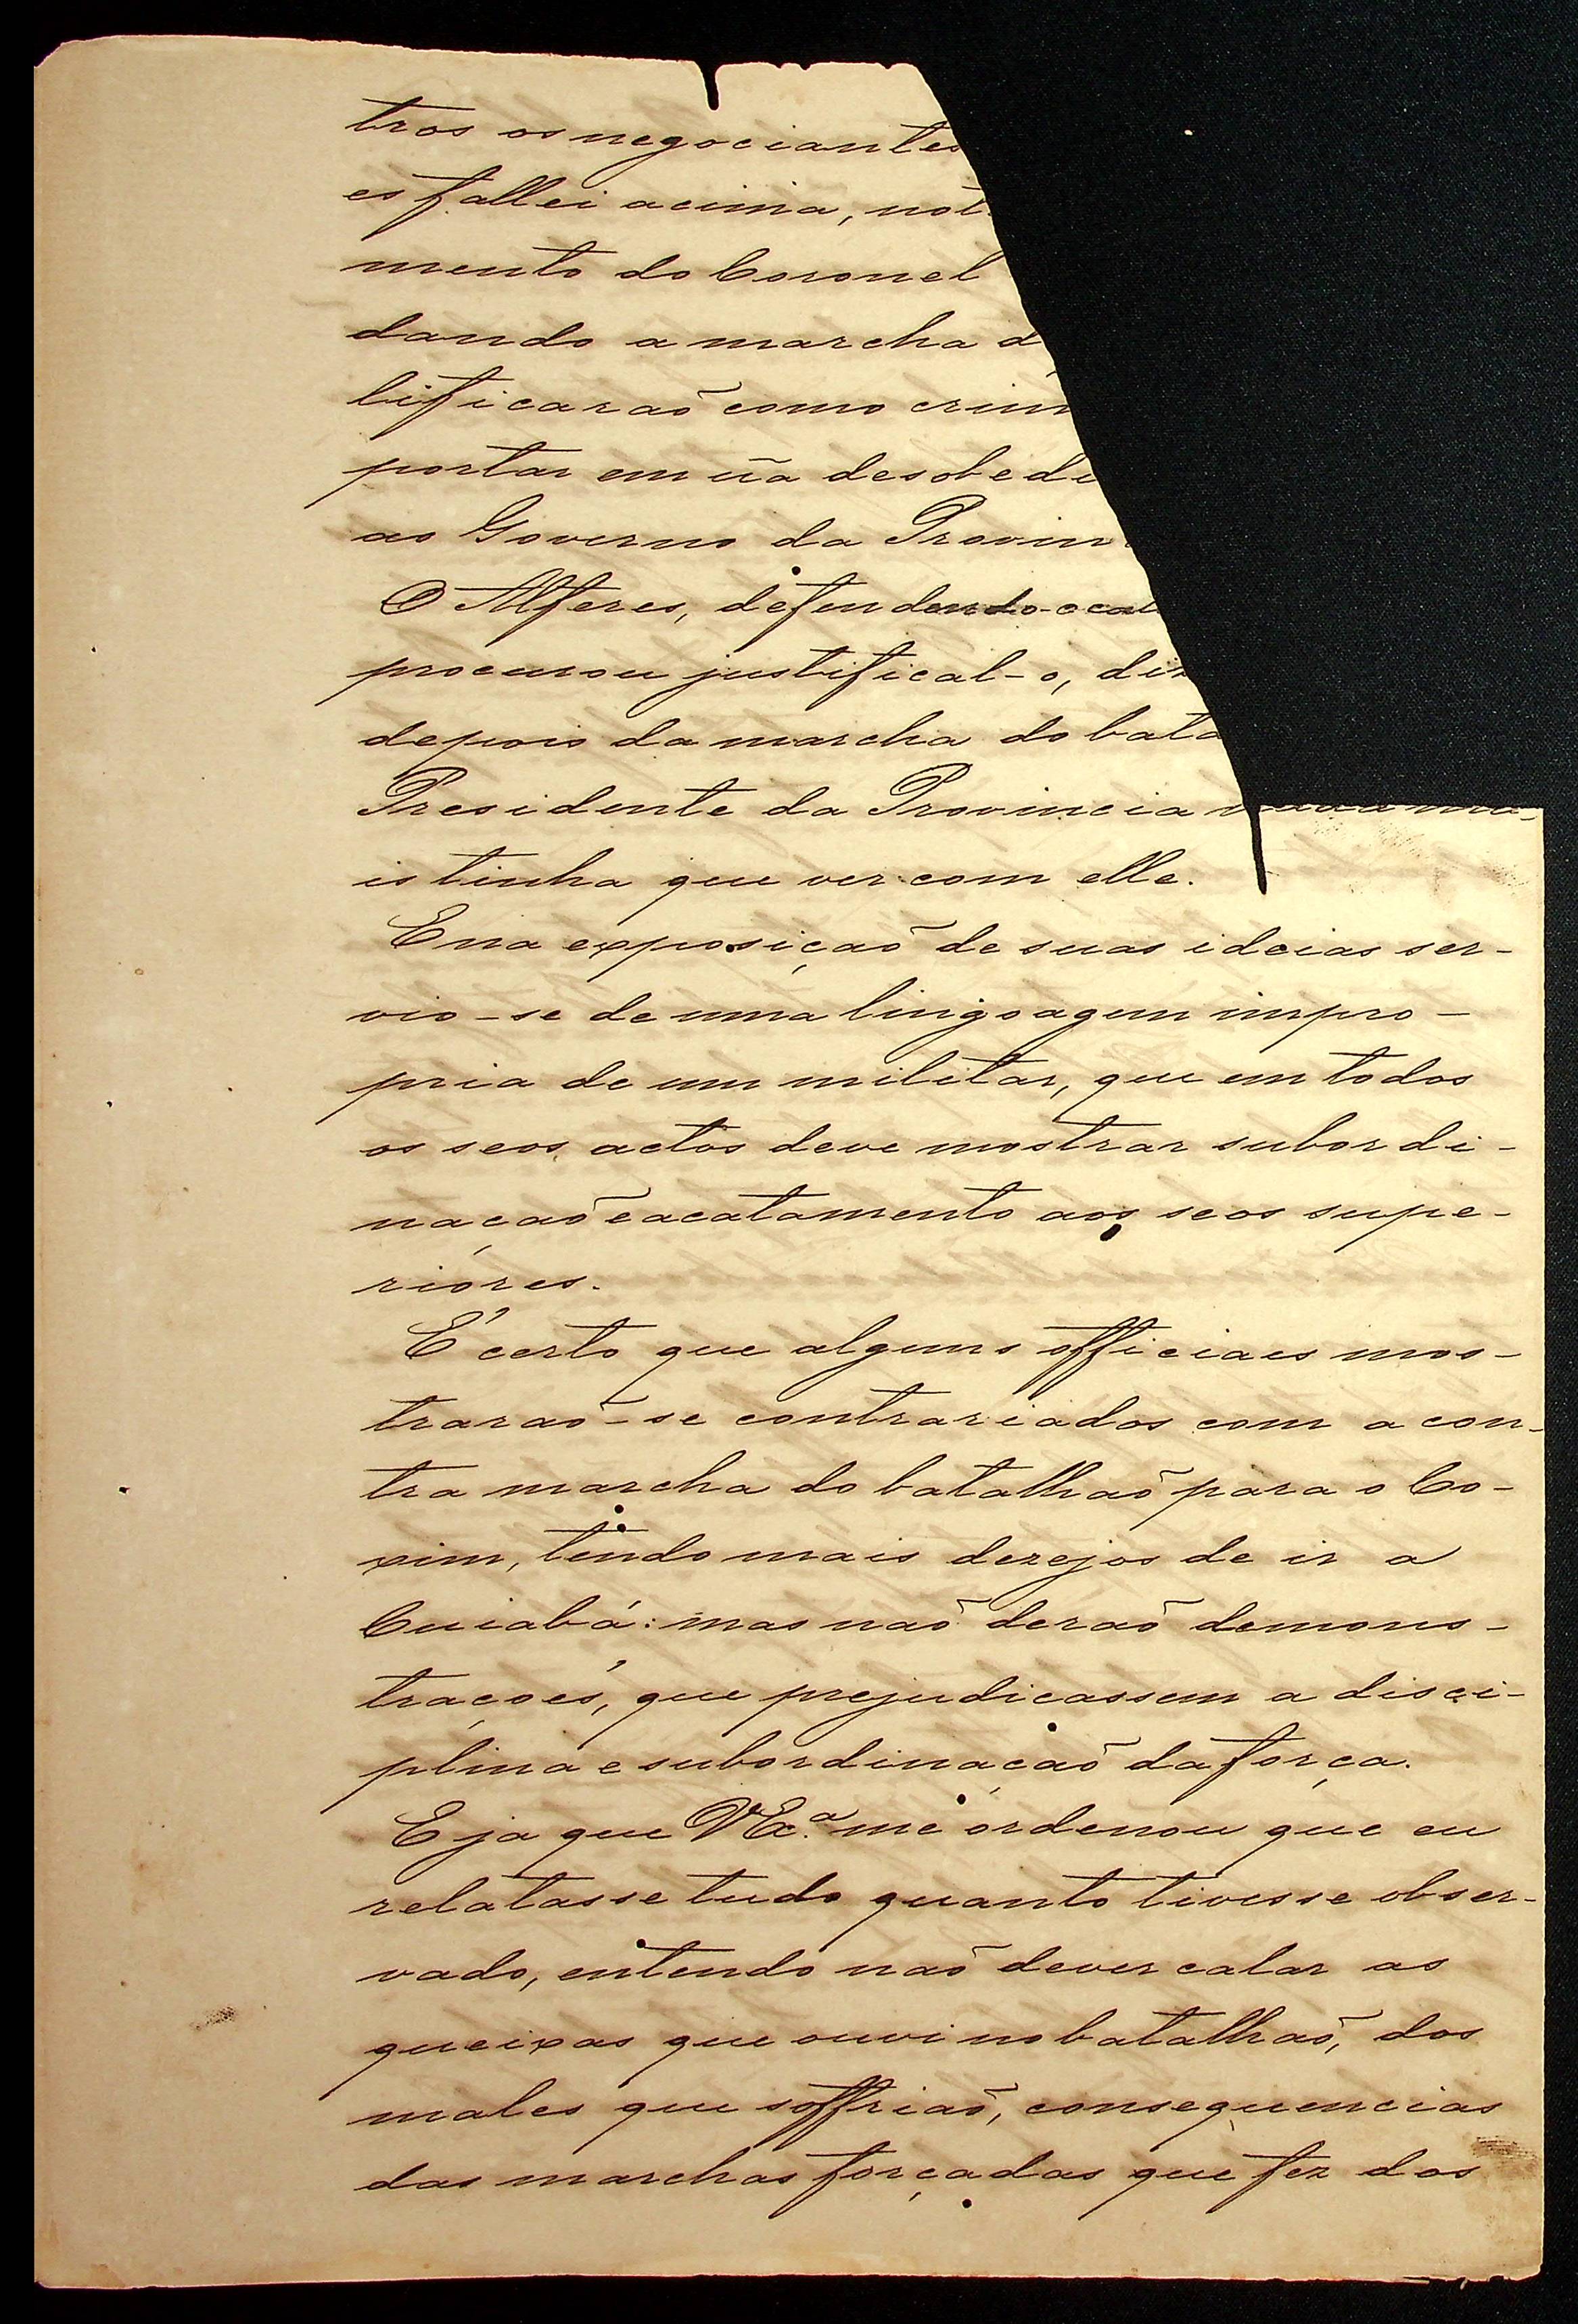 tros os negociantes
es fallei acima, not
mento do Coronel
dando a marcha d
lificaraõ como crim
portar em ũa desobedi
ao Governo da Provin
O Alferes, defendendo-o
procurou justifical-o, diz
depois da marcha do bata
Presidente da Provincia nada ma-
is tinha que ver com elle.
E na exposiçaõ de suas ideias ser-
vio-se de uma lingoagem impro-
pria de um militar, que em todos
os seos actos deve mostrar subordi-
naçaõ e acatamento aos seos supe-
riores.
É certo que alguns officiaes mos-
traraõ-se contrariados com a con-
tra marcha do batalhaõ para o Co-
xim, tendo mais dezejos de ir a
Cuiabá: mas naõ deraõ demons-
traçoés, que prejudicassem a disci-
plina e subordinaçaõ da força.
E ja que VEx.ª me ordenou que eu
relatasse tudo quanto tivesse obser-
vado, entendo naõ dever calar as
queixas que ouvi no batalhaõ, dos
males que soffriaõ, consequencias
das marchas forçadas que fez dos